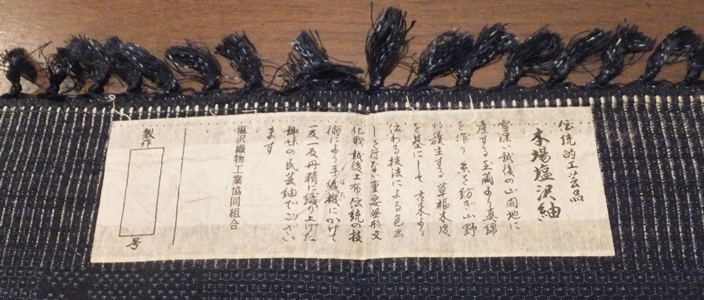 伝統的工芸品
本場塩沢紬
雪深い越後の山間地に
産する玉繭より真綿
を作り 糸を紡ぎ山野
に簇生する草根木皮
を基にして 古来より
伝わる技法による色出
しを行ない重要無形文
化財越後上布伝統の技
術により手織機にかけて
一反一反丹精に織り上げた
趣味の民芸紬でござい
ます
塩沢織物工業協同組合
製作
号